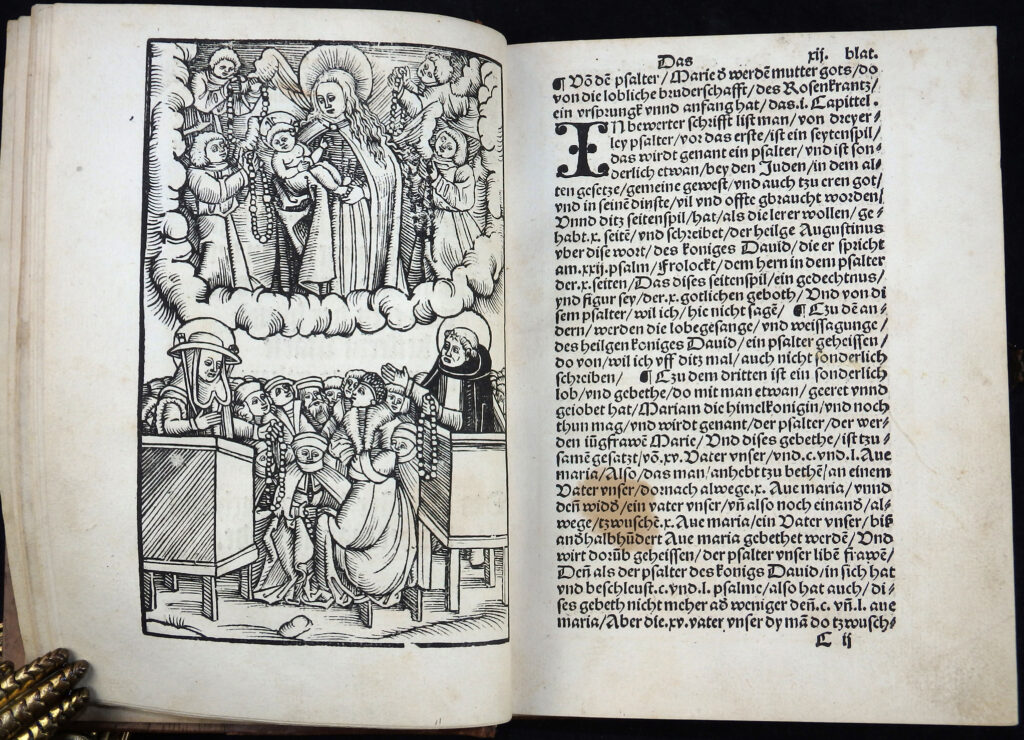 Das
xij. blat.
¶ Võ dẽ psalter/Marie đ werdẽ mutter gots/do
von die lobliche bruderschafft/des Rosenkrantz/
ein vrsprungk vnnd anfang hat/das.i. Capittel.
IN bewerter schrifft list man/von dreyer-
ley psalter/vor das erste/ist ein seytenspil/
das wirdt genant ein psalter/vnd ist son-
derlich etwan/bey den Juden/in dem al-
ten gesetze/gemeine gewest/vnd auch tzu eren got/
vnd in seinẽ dinste/vil vnd offte gbraucht worden/
Vnnd ditz seitenspil/hat/als die lerer wollen/ge-
habt.x. seitẽ/vnd schreibet/der heilge Augustinus
vber dise wort/des koniges Dauid/die er spricht
am.xxij.psalm/Frolockt/dem hern in dem psalter
der.x.seiten/Das dises seitenspil/ein gedechtnus/
vnd figur sey/der.x.gotlichen geboth/Vnd von di
sem psalter/wil ich/hie nicht sagẽ/ ¶ Tzu dẽ an-
dern/werden die lobegesange/vnd weissagunge/
des heilgen koniges Dauid/ein psalter geheissen/
do von/wil ich vff ditz mal/auch nicht sonderlich
schreiben/ ¶ Tzu dem dritten ist ein sonderlich
lob/vnd gebethe/do mit man etwan/geeret vnnd
gelobet hat/Mariam die himelkonigin/vnd noch
thun mag/vnd wirdt genant/der psalter/der wer-
den iũgfrawẽ Marie/Vnd dises gebethe/ist tzu-
samẽ gesatzt/võ.xv.Vater vnser/vnd.c.vnd.l.Aue
maria/Also/das man/anhebt tzu bethẽ/an einem
Vater vnser/dornach alwege.x. Aue maria/vnnd
deñ widđ/ein vater vnser/vñ also noch einanđ/al-
wege/tzwuschẽ.x.Aue maria/ein Vater vnser/biß
anđhalbhũdert Aue maria gebethet werdẽ/Vnd
wirt dorũb geheissen/der psalter vnser libẽ frawẽ/
Deñ als der psalter des konigs Dauid/in sich hat
vnd beschleust.c.vnd.l. psalme/also hat auch/di-
ses gebeth nicht meher ađ weniger deñ.c. vñ.l. aue
maria/Aber die.xv.vater vnser dy mã do tzwusch-
C ij